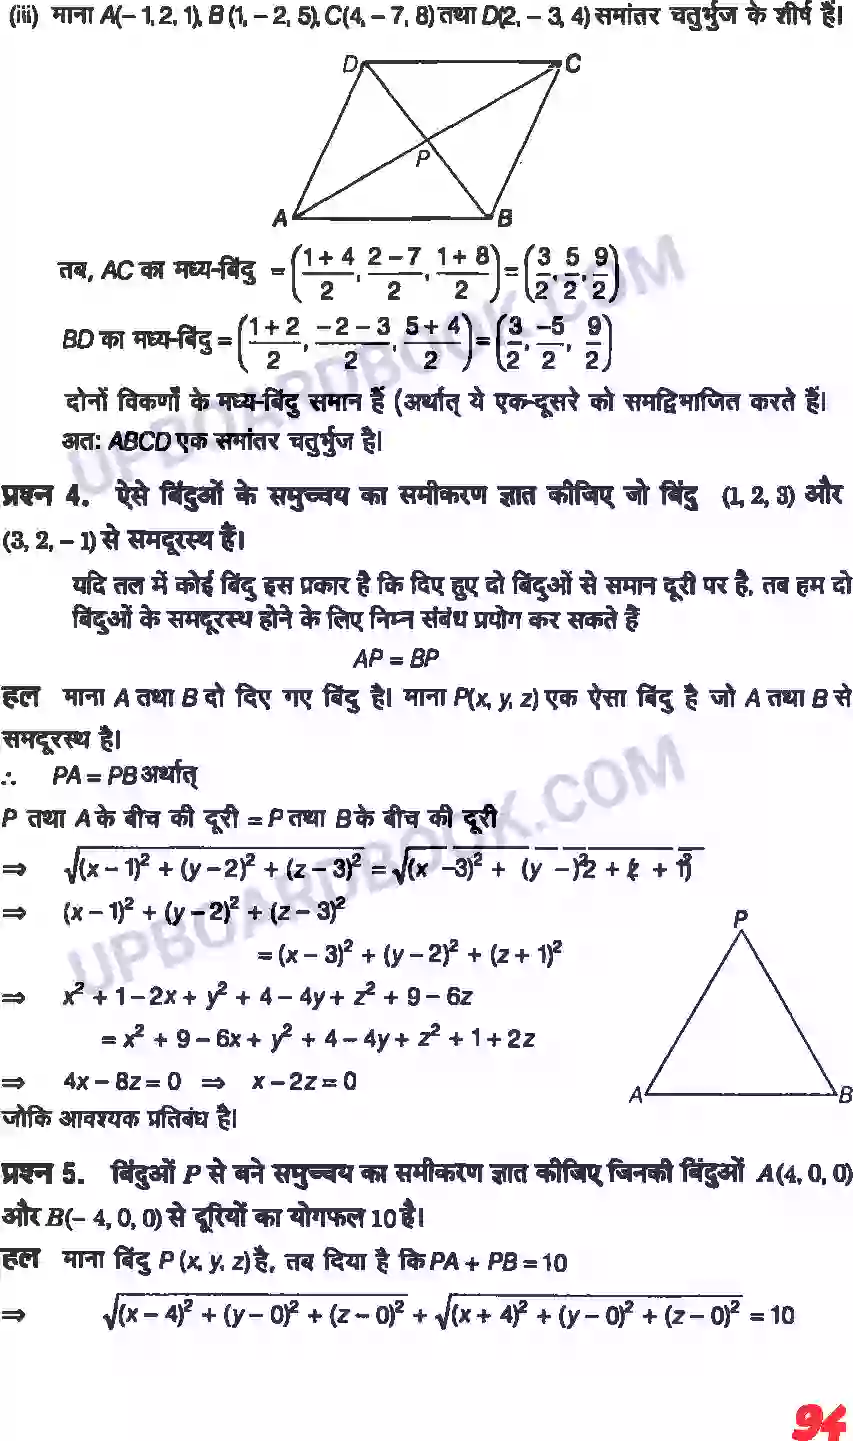 (iii) माना A(– 1, 2, 1), B (1, – 2, 5), C(4, – 7, 8) तथा D(2, – 3, 4) समांतर चतुर्भुज के शीर्ष हैं।
D C
P
A B
तब, AC का मध्य-बिंदु = ((1 + 4)/2, (2 – 7)/2, (1 + 8)/2) = (3/2, 5/2, 9/2)
BD का मध्य-बिंदु = ((1 + 2)/2, (– 2 – 3)/2, (5 + 4)/2) = (3/2, –5/2, 9/2)
दोनों विकर्णों के मध्य-बिंदु समान हैं (अर्थात् ये एक-दूसरे को समद्विभाजित करते हैं।
अतः ABCD एक समांतर चतुर्भुज है।
प्रश्न 4. ऐसे बिंदुओं के समुच्चय का समीकरण ज्ञात कीजिए जो बिंदु (1, 2, 3) और
(3, 2, – 1) से समदूरस्थ हैं।
यदि तल में कोई बिंदु इस प्रकार है कि दिए हुए दो बिंदुओं से समान दूरी पर है, तब हम दो
बिंदुओं के समदूरस्थ होने के लिए निम्न संबंध प्रयोग कर सकते हैं
AP = BP
हल माना A तथा B दो दिए गए बिंदु है। माना P(x, y, z) एक ऐसा बिंदु है जो A तथा B से
समदूरस्थ है।
∴ PA = PB अर्थात्
P तथा A के बीच की दूरी = P तथा B के बीच की दूरी
⇒ √(x – 1)² + (y – 2)² + (z – 3)² = √(x –3)² + (y – )²2 + (z + 1)²
⇒ (x – 1)² + (y – 2)² + (z – 3)²
= (x – 3)² + (y – 2)² + (z + 1)²
⇒ x² + 1 – 2x + y² + 4 – 4y + z² + 9 – 6z
= x² + 9 – 6x + y² + 4 – 4y + z² + 1 + 2z
⇒ 4x – 8z = 0 ⇒ x – 2z = 0
जोकि आवश्यक प्रतिबंध है।
P
A B
प्रश्न 5. बिंदुओं P से बने समुच्चय का समीकरण ज्ञात कीजिए जिनकी बिंदुओं A(4, 0, 0)
और B(– 4, 0, 0) से दूरियों का योगफल 10 है।
हल माना बिंदु P (x, y, z) है, तब दिया है कि PA + PB = 10
⇒ √(x – 4)² + (y – 0)² + (z – 0)² + √(x + 4)² + (y – 0)² + (z – 0)² = 10
94
UPBOARDBOOK.COM
UPBOARDBOOK.COM